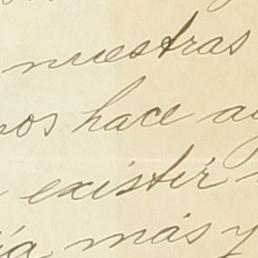 nuestras
nos hace a
existir
más y